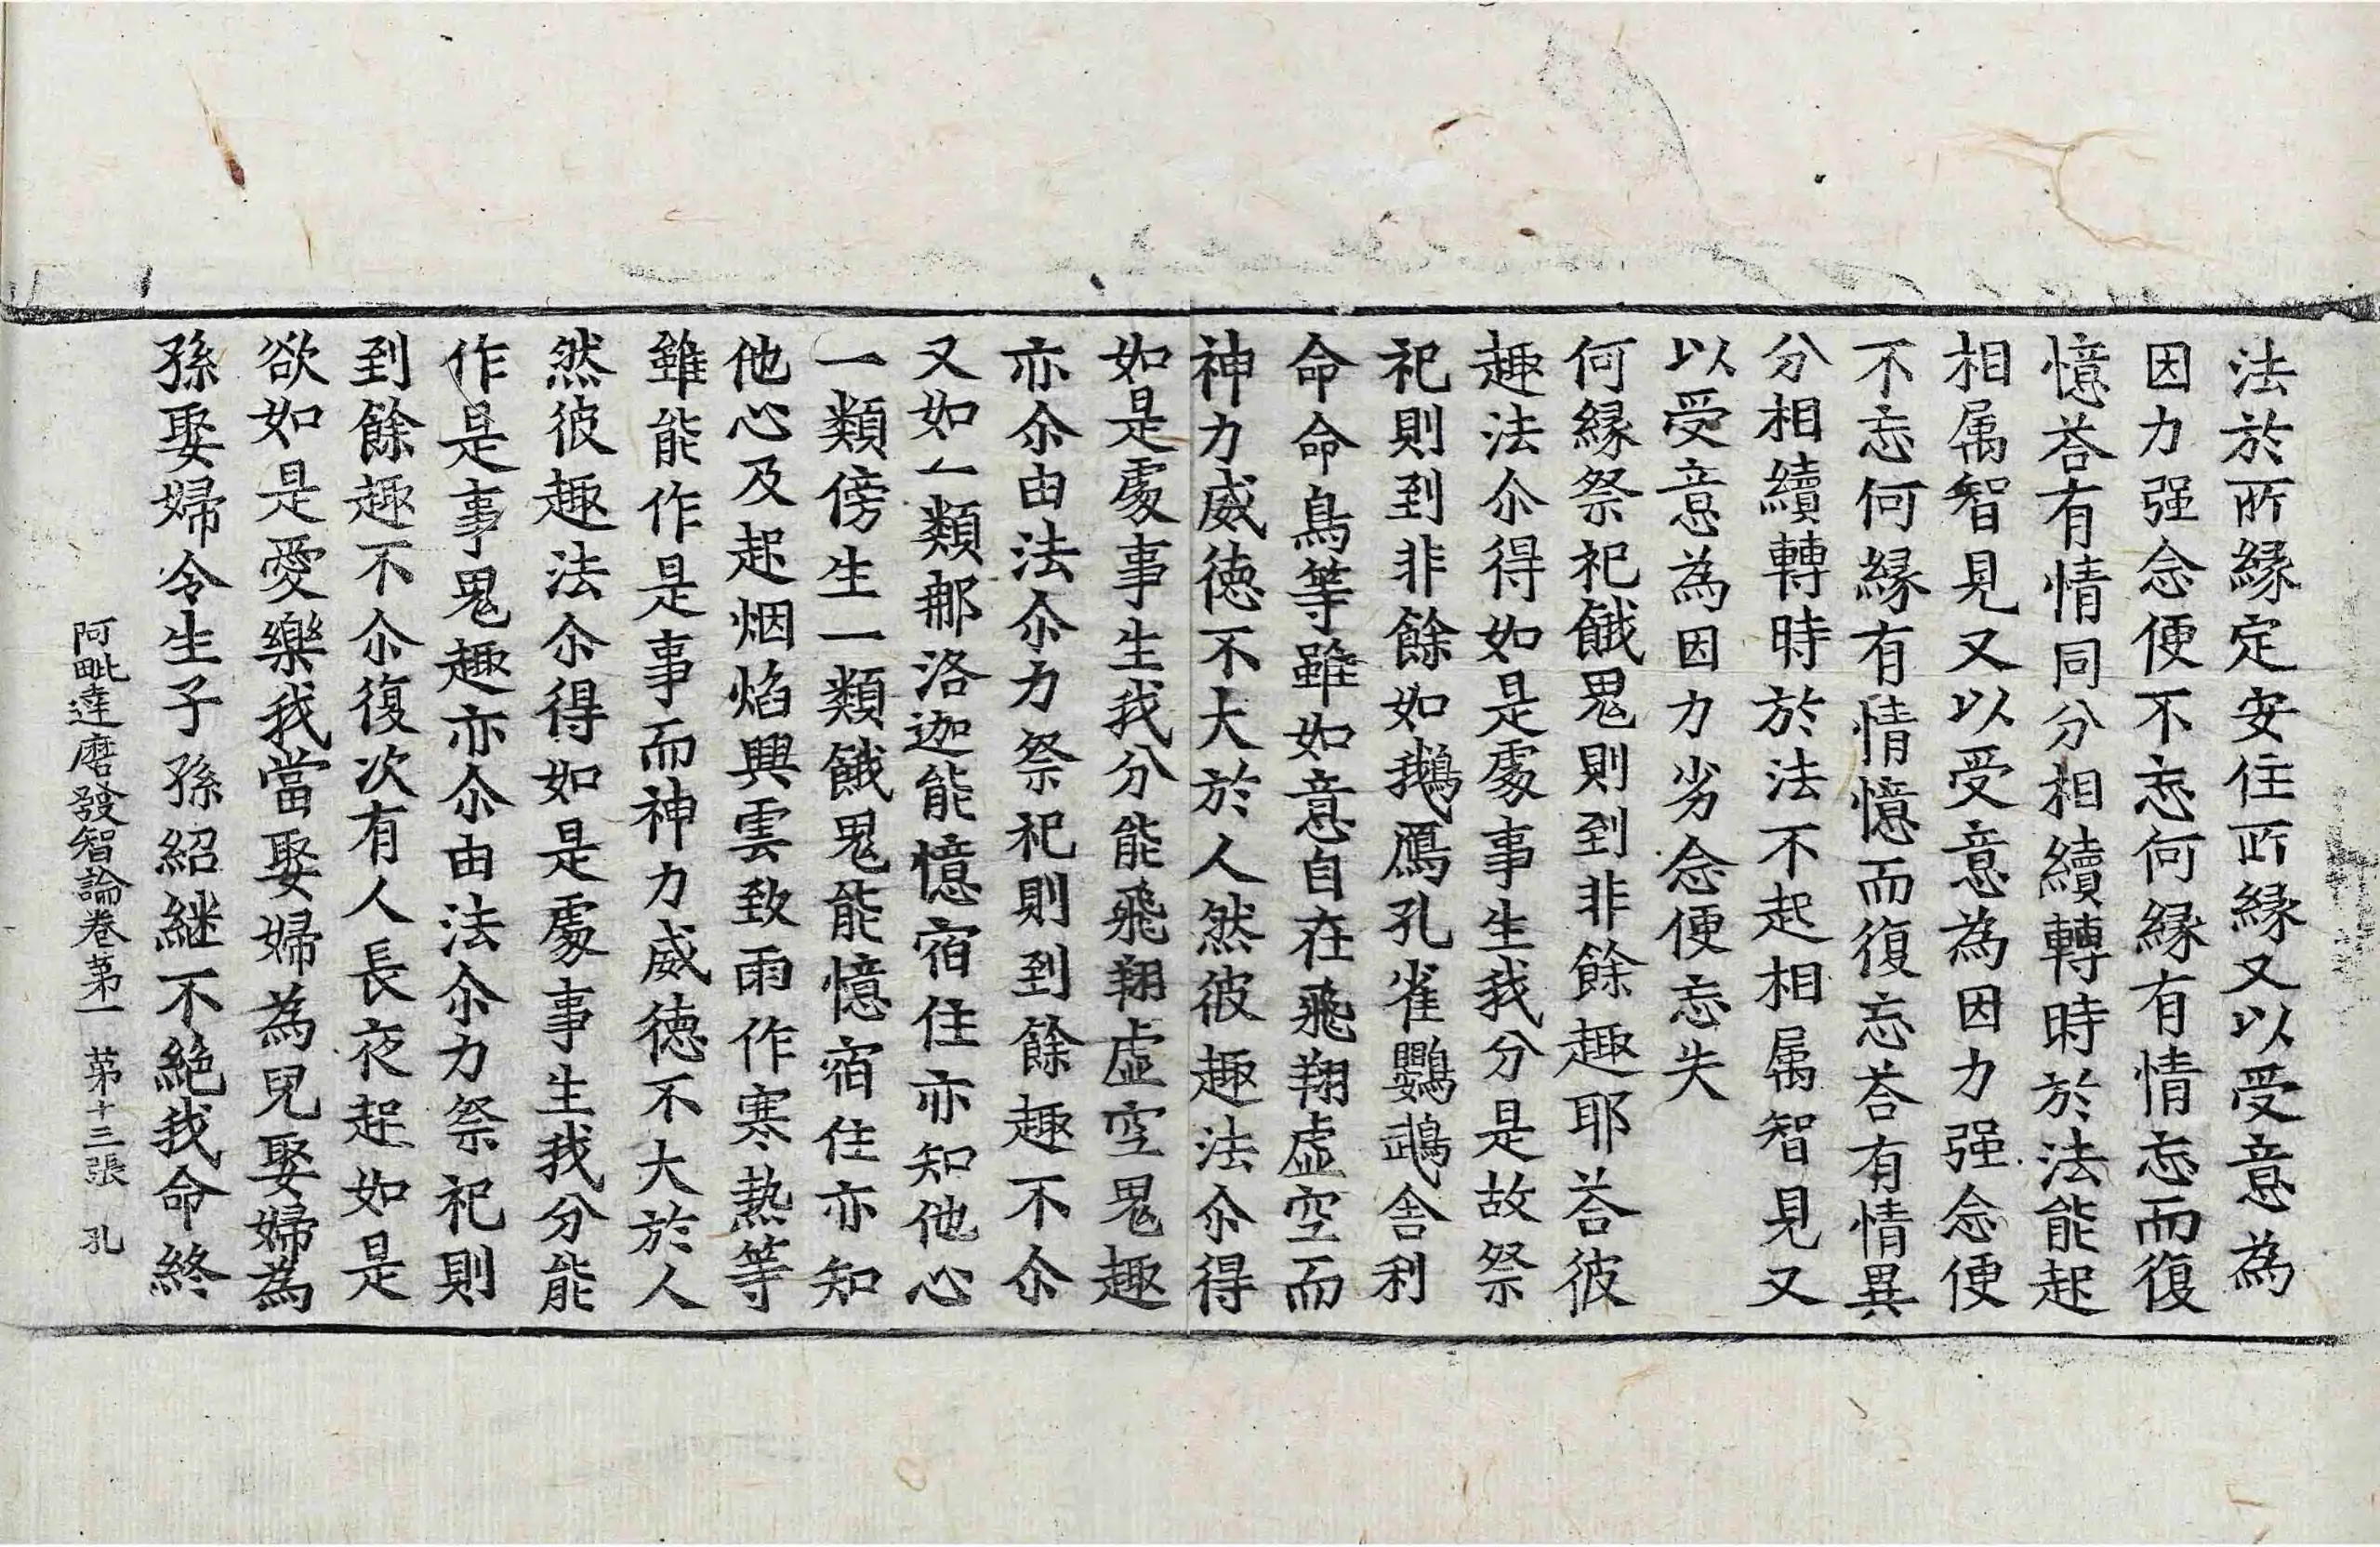 法於所緣定安住所緣又以受意為
因力强念便不忘何緣有情忘而復
憶荅有情同分相續轉時於法能起
相属智見又以受意為因力强念便
不忘何緣有情憶而復忘荅有情異
分相續轉時於法不起相属智見又
以受意為因力劣念便忘失
何緣祭祀餓鬼則到非餘趣耶荅彼
趣法尒得如是處事生我分是故祭
祀則到非餘如鵝鴈孔雀鸚鵡舍利
命命鳥等雖如意自在飛翔虛空而
神力威德不大於人然彼趣法尒得
如是處事生我分能飛翔虛空鬼趣
亦尒由法尒力祭祀則到餘趣不尒
又如一類那洛迦能憶宿住亦知他心
一類傍生一類餓鬼能憶宿住亦知
他心及起烟焰興雲致雨作寒熱等
雖能作是事而神力威德不大於人
然彼趣法尒得如是處事生我分能
作是事鬼趣亦尒由法尒力祭祀則
到餘趣不尒復次有人長夜起如是
欲如是愛樂我當娶婦為兒娶婦為
孫娶婦令生子孫紹継不絶我命終
阿毗達磨發智論卷苐一 苐十三張 孔